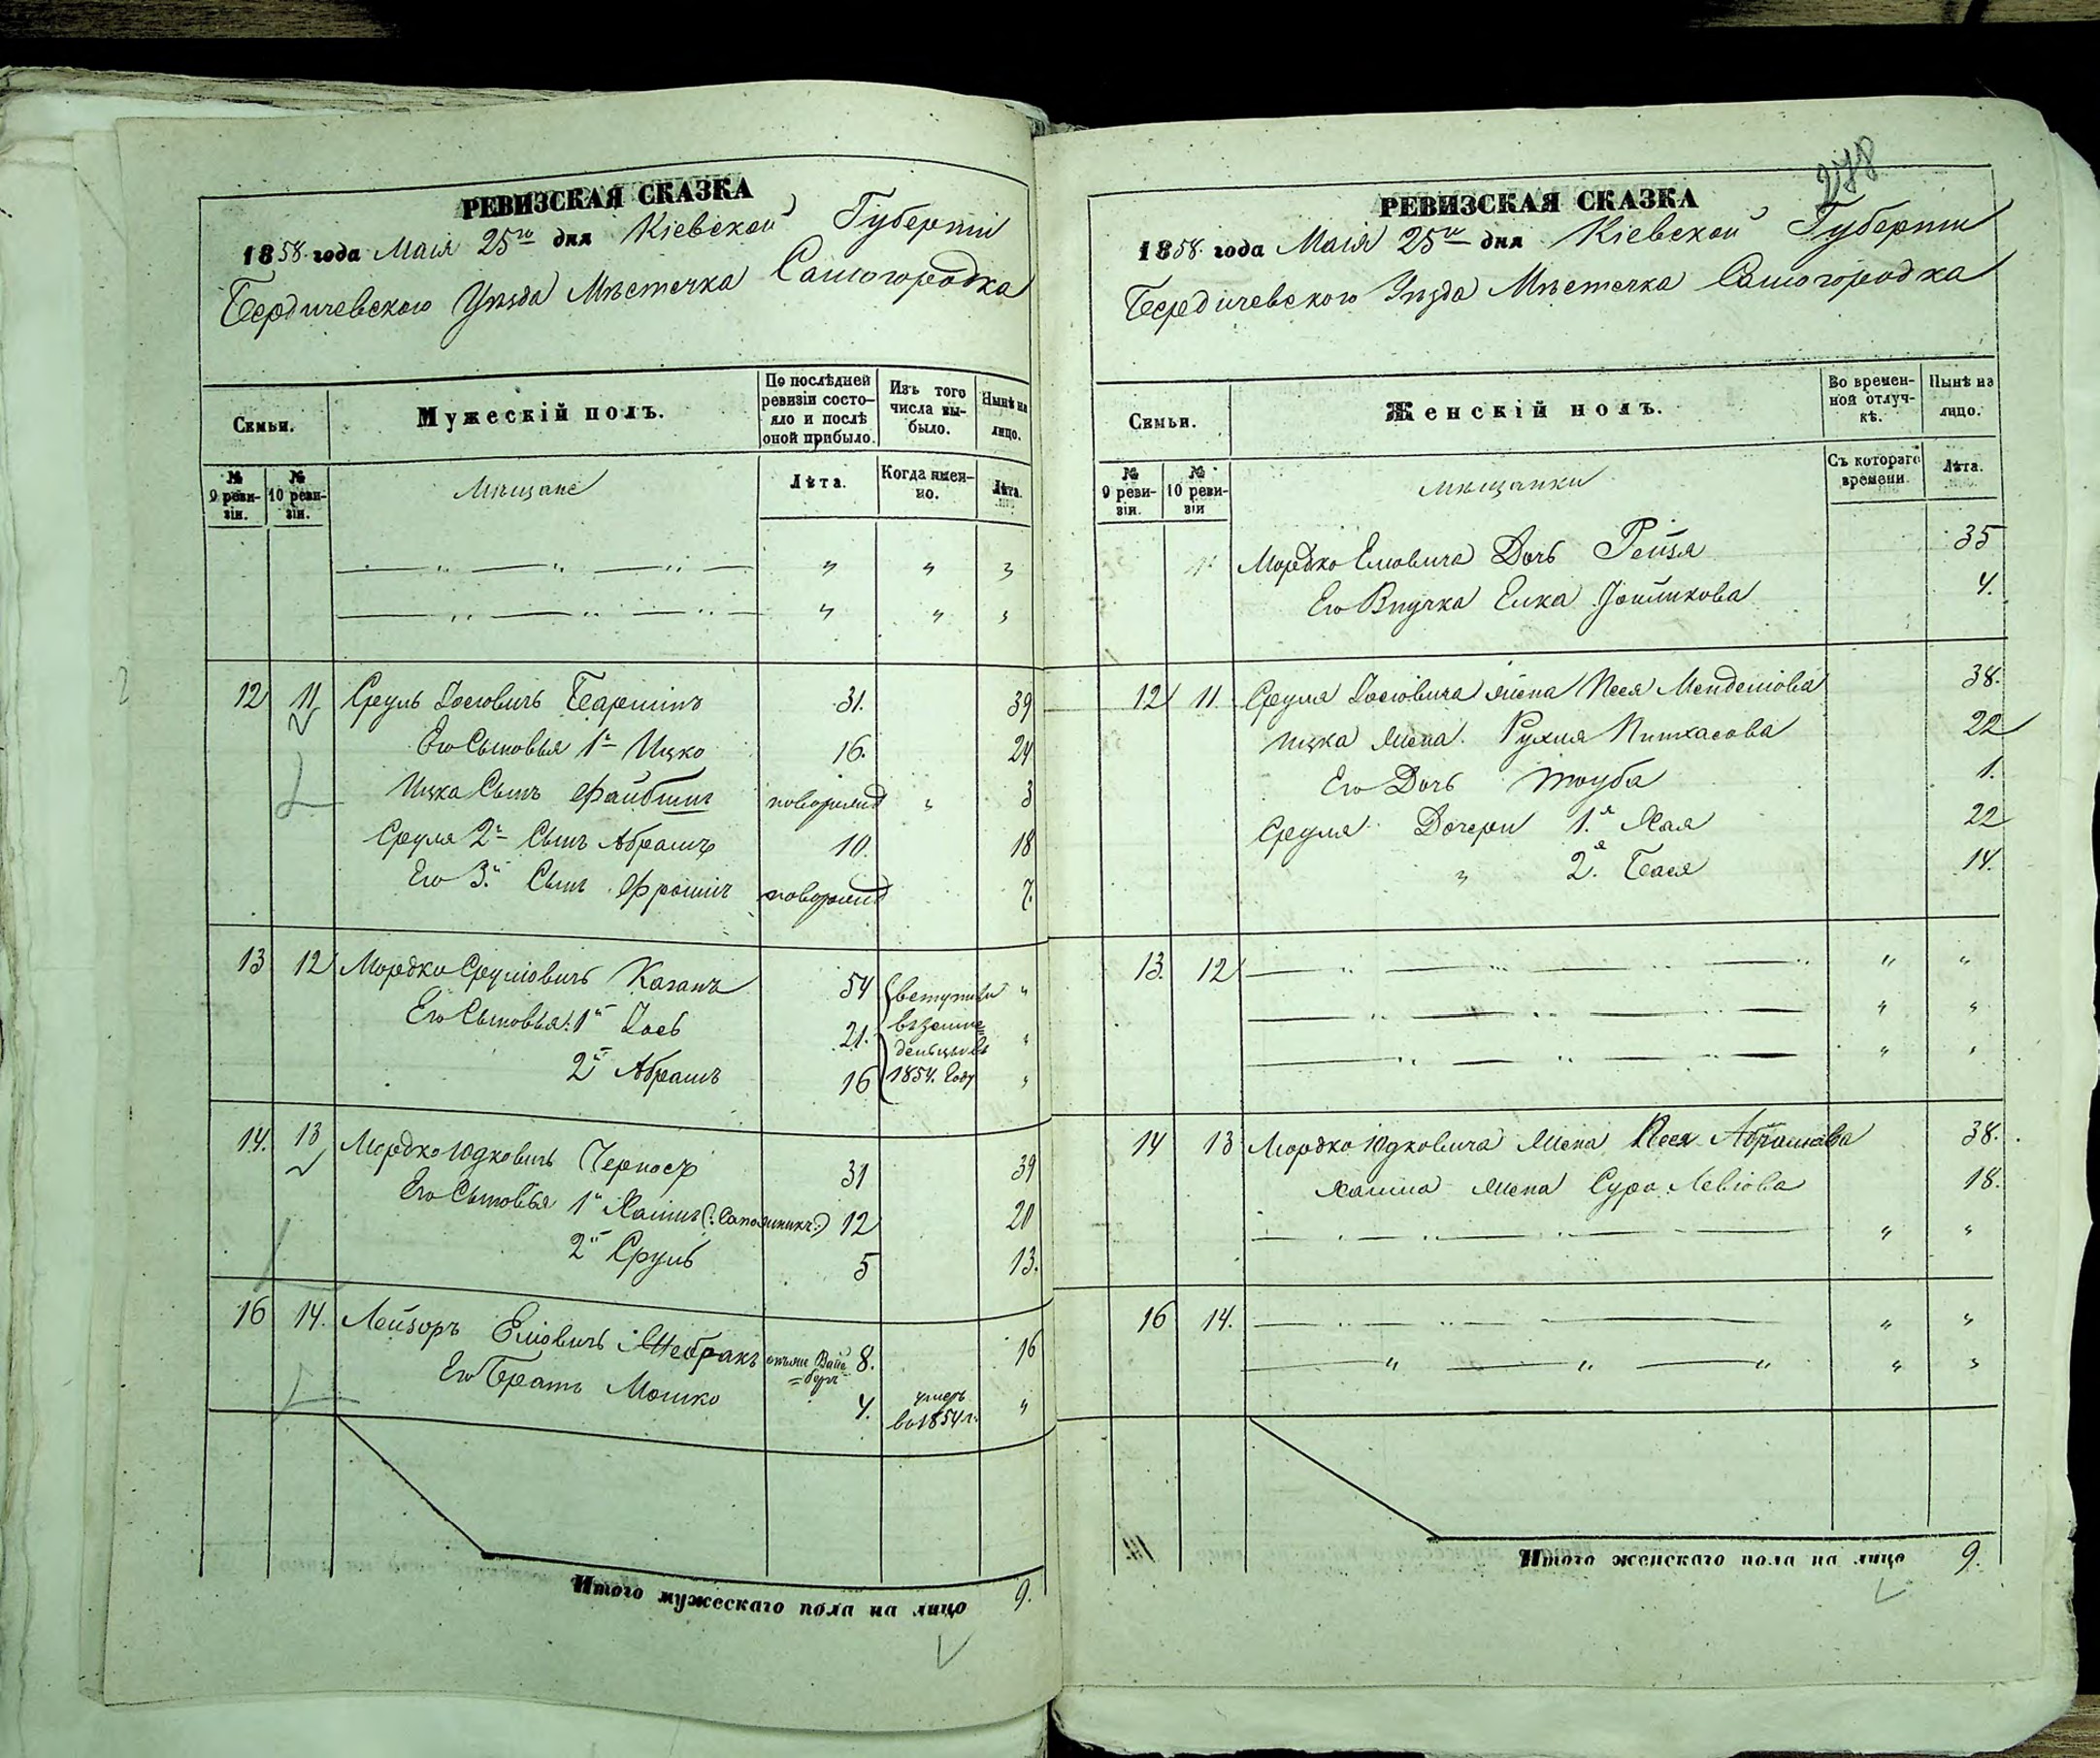 РЕВИЗСКАЯ СКАЗКА
1858 года Маія 25го дня Кіевской Губерніи
Бердичевского Уѣзда Мѣстечка Самогородка
Семьи.
Мужескій полъ.
По послѣдней ревизіи состояло и послѣ оной прибыло.
Изъ того числа выбыло.
Нынѣ на лицо.
№ 9 ревизіи.
№ 10 ревизіи.
Мѣщане
Лѣта.
Когда именно.
Лѣта.
12 11 Сруль Іосіовичъ 31. 39
Его Сыновья 1й Ицко 16. 24
Ицка Сынъ Файбишъ новорожд " 3
Сруля 2й Сынъ Абрамъ 10. 18
Его 3й Сынъ Фроимъ новорожд 7.
13 12 Мордко Сруліовичъ Каганъ 54 вступили "
Его Сыновья: 1й Іось 21. въ земле "
дельцы въ
2й Абрамъ 16 1854. году "
14. 13 Мордко Юдковичъ 31 39
Его Сыновья 1й Хаимъ (: Сапожникъ:) 12 20
2й Сруль 5 13.
16 14. Лейзоръ Еліовичъ 8. 16
Его Братъ Мошко 4. умеръ "
въ 1854 г.
Итого мужескаго пола на лицо 9.
278
РЕВИЗСКАЯ СКАЗКА
1858 года Маія 25го дня Кіевской Губерніи
Бердичевского Уѣзда Мѣстечка Самогородка
Семьи.
Женскій полъ.
Во временной отлучкѣ.
Нынѣ на лицо.
№ 9 ревизіи.
№ 10 ревизіи
Мѣщанки
Съ котораго времени.
Лѣта.
Мордко Еліовича Дочь Рейзя 35
Его Внучка Елка 4.
12 11. Сруля Іосіовича жена Песя Менделіова 38.
Ицка жена Рухля Пинхасова 22
Его Дочь Тоуба 1.
Сруля Дочери 1я Хая 22
" 2я Бася 14.
13. 12 " "
" "
" "
14 13 Мордко Юдковича жена Песя Абрамова 38.
Хаима жена Сура Левіова 18.
" "
16 14. " "
" "
Итого женскаго пола на лицо 9.